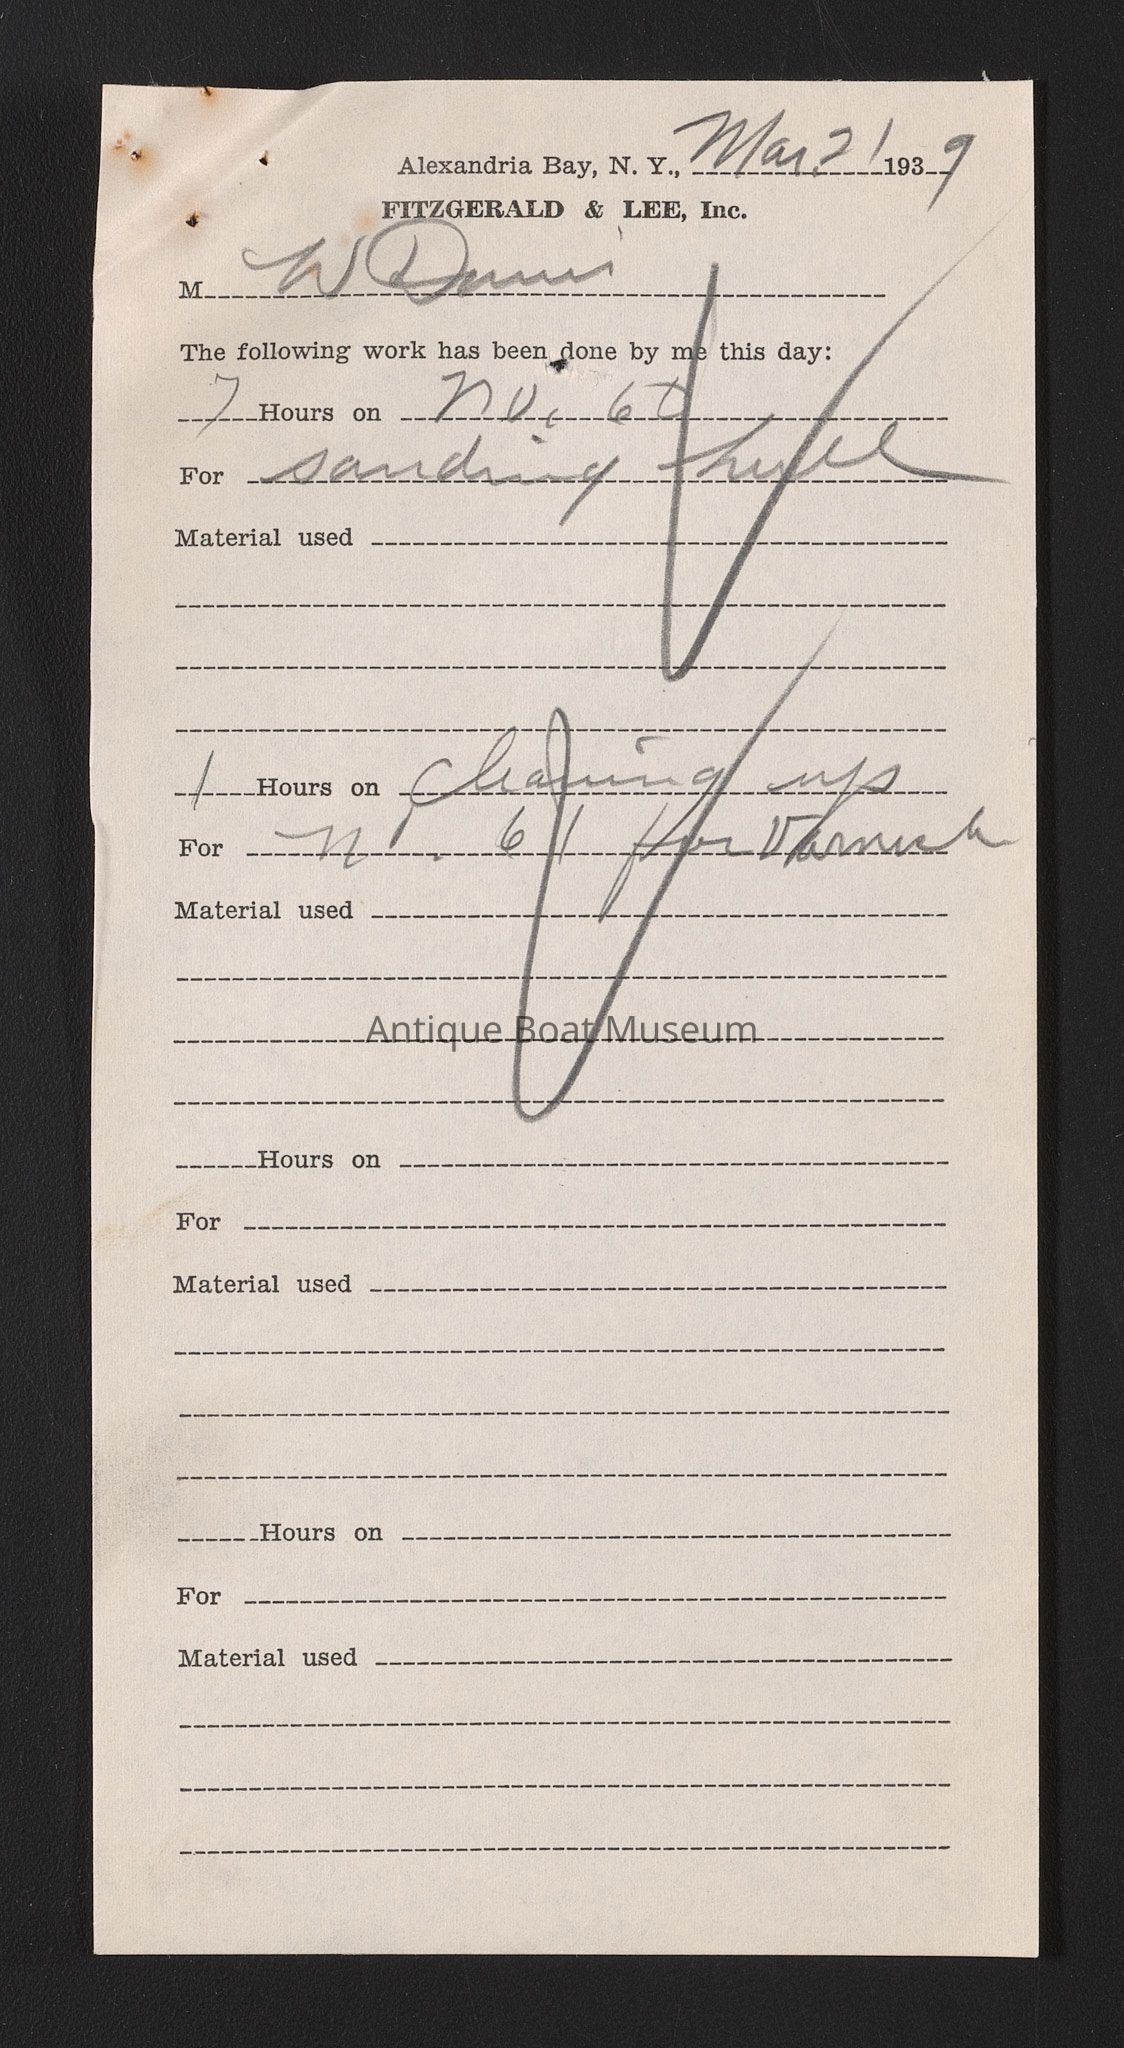 Alexandria Bay, N. Y., Mar. 21 1939
FITZGERALD & LEE, Inc.
M W
The following work has been done by me this day:
7 Hours on No. 60
For sanding hull
Material used
1 Hours on Cleaning up
For No. 61 for Varnish
Material used
Antique Boat Museum
Hours on
For
Material used
Hours on
For
Material used